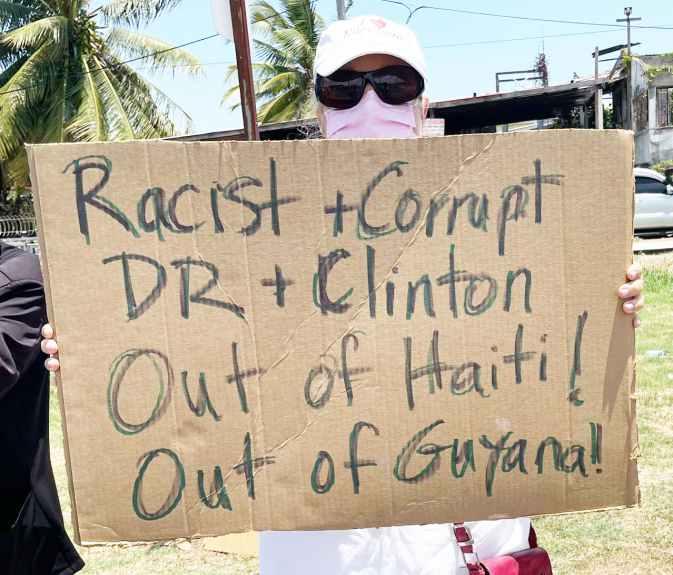 Racist + Corrupt
DR + Clinton
Out of Haiti!
Out of Guyana!!